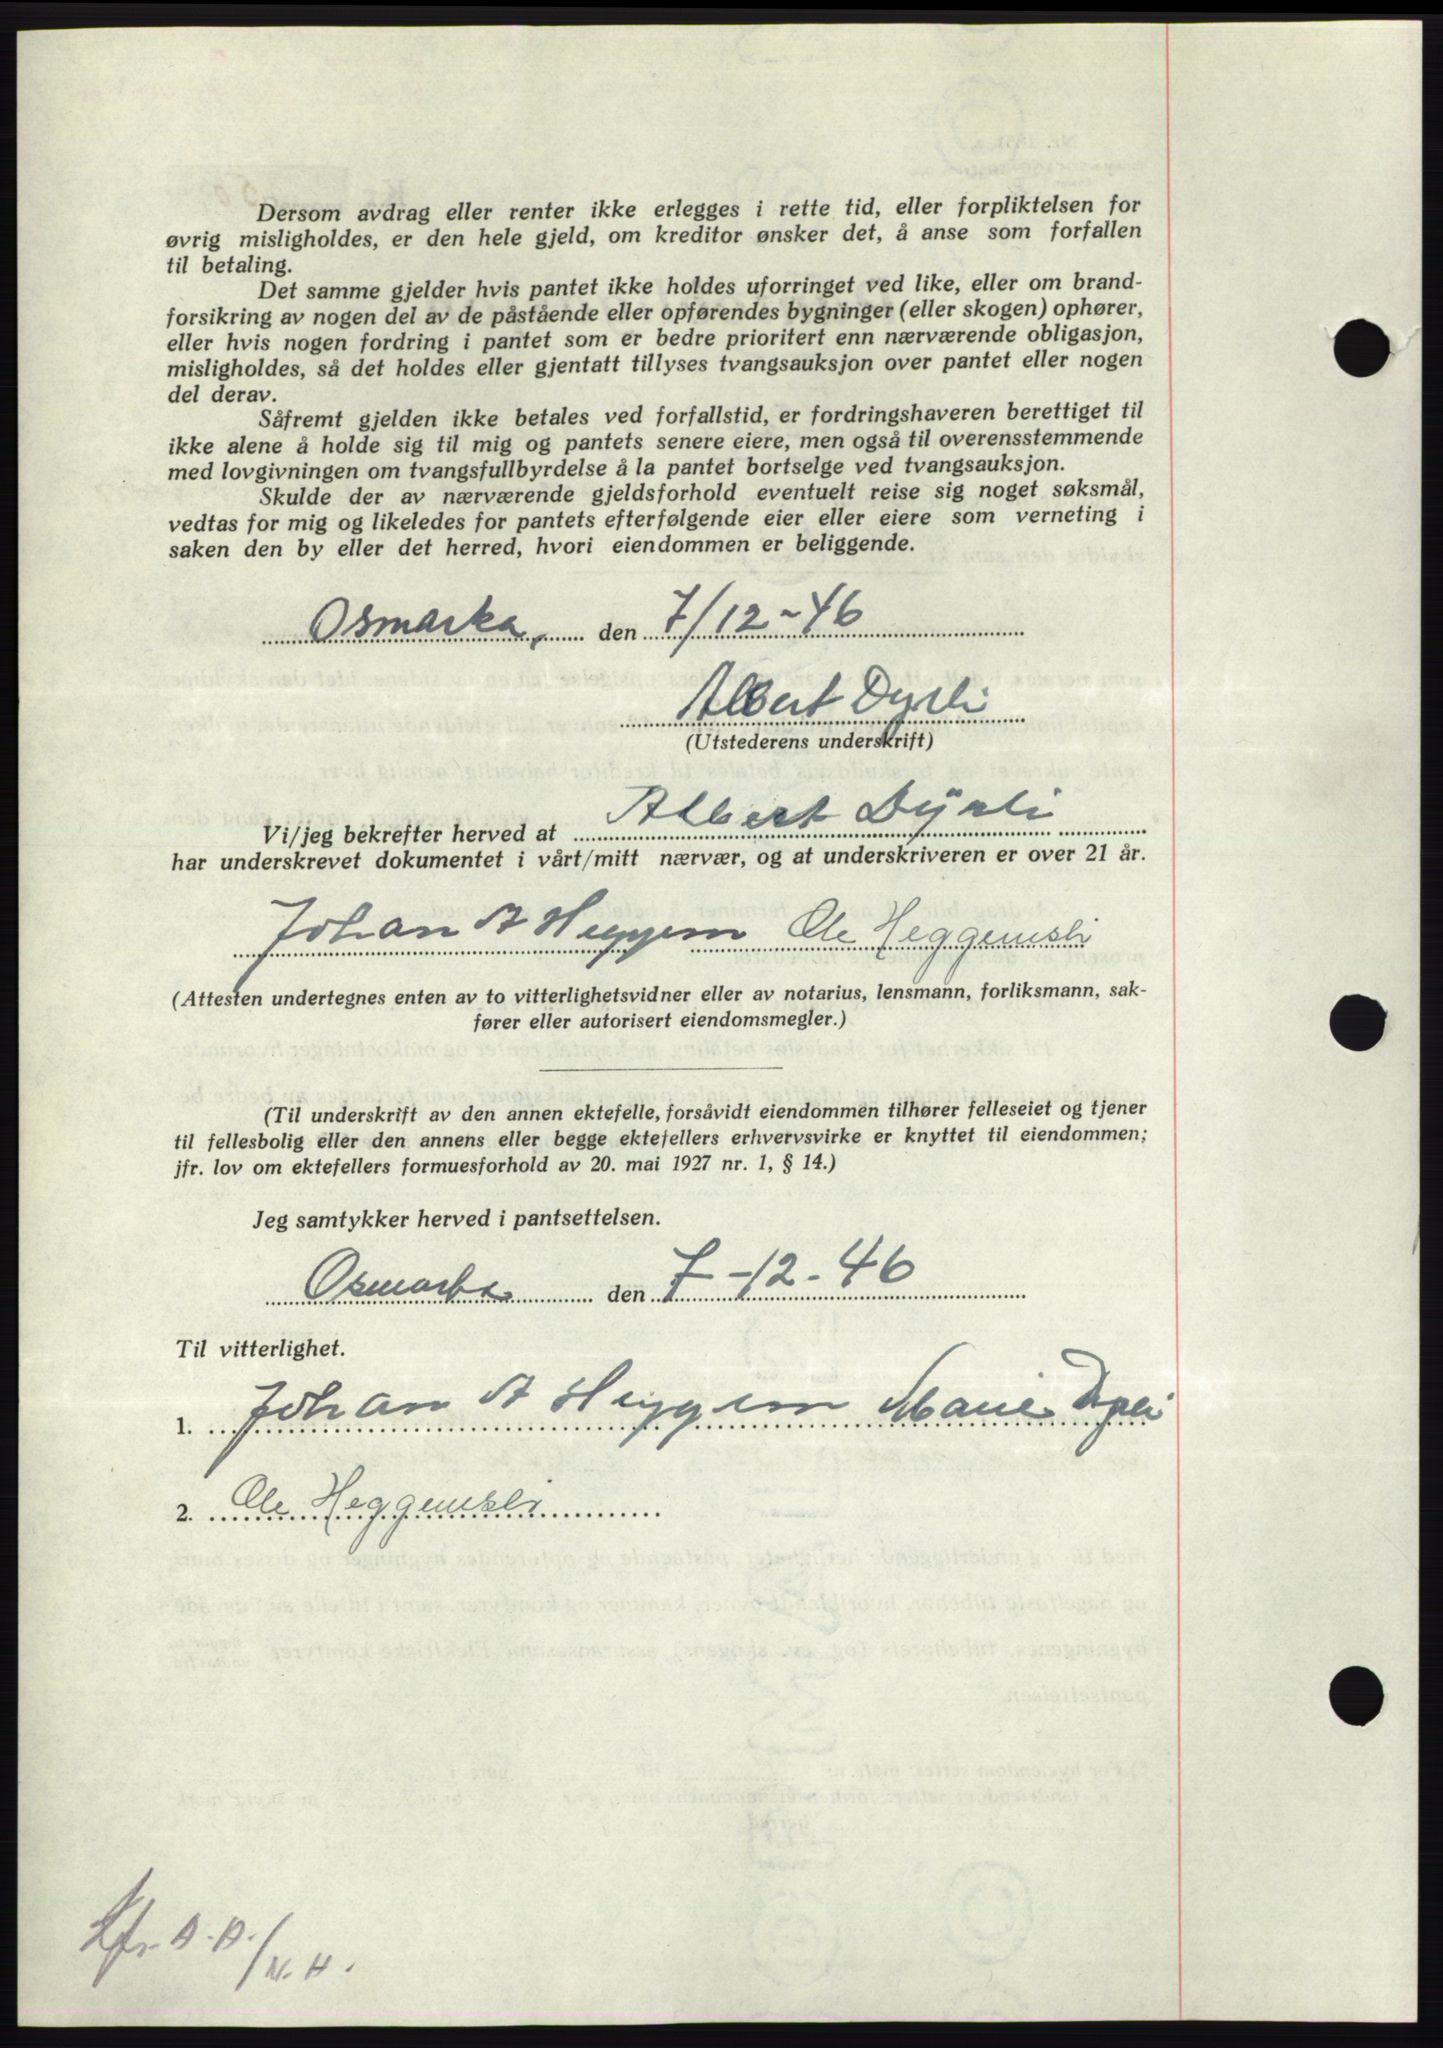 Dersom avdrag eller renter ikke erlegges i rette tid, eller forpliktelsen for
øvrig misligholdes, er den hele gjeld, om kreditor ønsker det, å anse som forfallen
til betaling.
Det samme gjelder hvis pantet ikke holdes uforringet ved like, eller om brand-
forsikring av nogen del av de påstående eller opførendes bygninger (eller skogen) ophører,
eller hvis nogen fordring i pantet som er bedre prioritert enn nærværende obligasjon,
misligholdes, så det holdes eller gjentatt tillyses tvangsauksjon over pantet eller nogen
del derav.
Såfremt gjelden ikke betales ved forfallstid, er fordringshaveren berettiget til
ikke alene å holde sig til mig og pantets senere eiere, men også til overensstemmende
med lovgivningen om tvangsfullbyrdelse å la pantet bortselge ved tvangsauksjon.
Skulde der av nærværende gjeldsforhold eventuelt reise sig noget søksmål,
vedtas for mig og likeledes for pantets efterfølgende eier eller eiere som verneting i
saken den by eller det herred, hvori eiendommen er beliggende.
Osmarka, den 7/12-46
Albert Dyrli
(Utstederens underskrift)
Vi/jeg bekrefter herved at Albert Dyrli
har underskrevet dokumentet i vårt/mitt nærvær, og at underskriveren er over 21 år.
Johan A Heggem Ole Heggemsli
(Attesten undertegnes enten av to vitterlighetsvidner eller av notarius, lensmann, forliksmann, sak-
fører eller autorisert eiendomsmegler.)
(Til underskrift av den annen ektefelle, forsåvidt eiendommen tilhører felleseiet og tjener
til fellesbolig eller den annens eller begge ektefellers erhvervsvirke er knyttet til eiendommen;
jfr. lov om ektefellers formuesforhold av 20. mai 1927 nr. 1, § 14.)
Jeg samtykker herved i pantsettelsen.
Osmarka den 7-12-46
Til vitterlighet.
1. Johan A Heggem Marie Dyrli
2. Ole Heggemsli